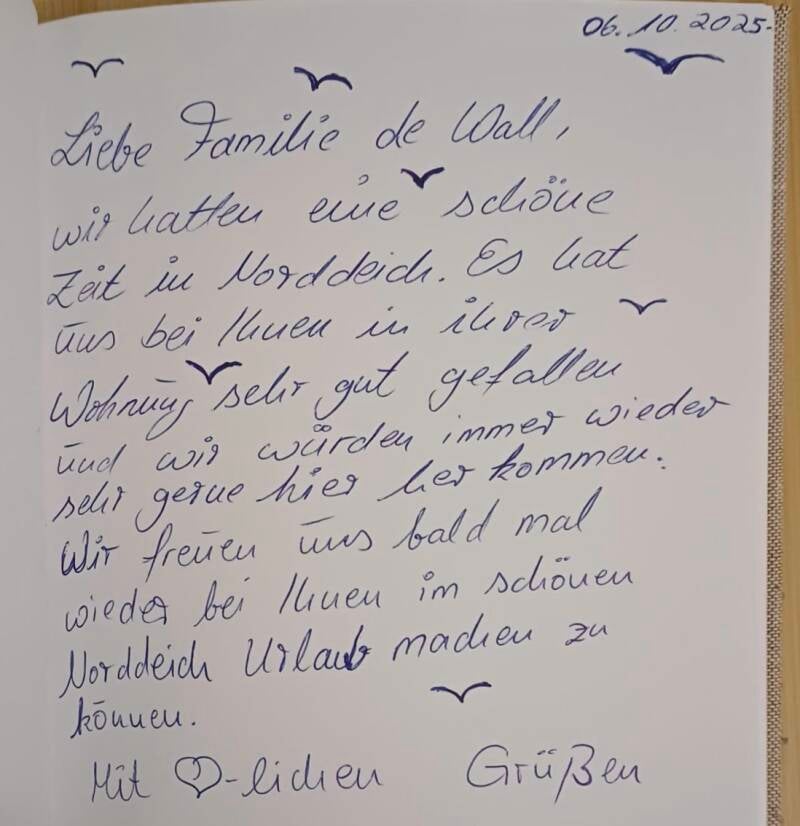 06.10.2025.
Liebe Familie de Wall,
wir hatten eine schöne
Zeit in Norddeich. Es hat
uns bei Ihnen in ihrer
Wohnung sehr gut gefallen
und wir würden immer wieder
sehr gerne hier her kommen.
Wir freuen uns bald mal
wieder bei Ihnen im schönen
Norddeich Urlaub machen zu
können.
Mit ♡-lichen Grüßen